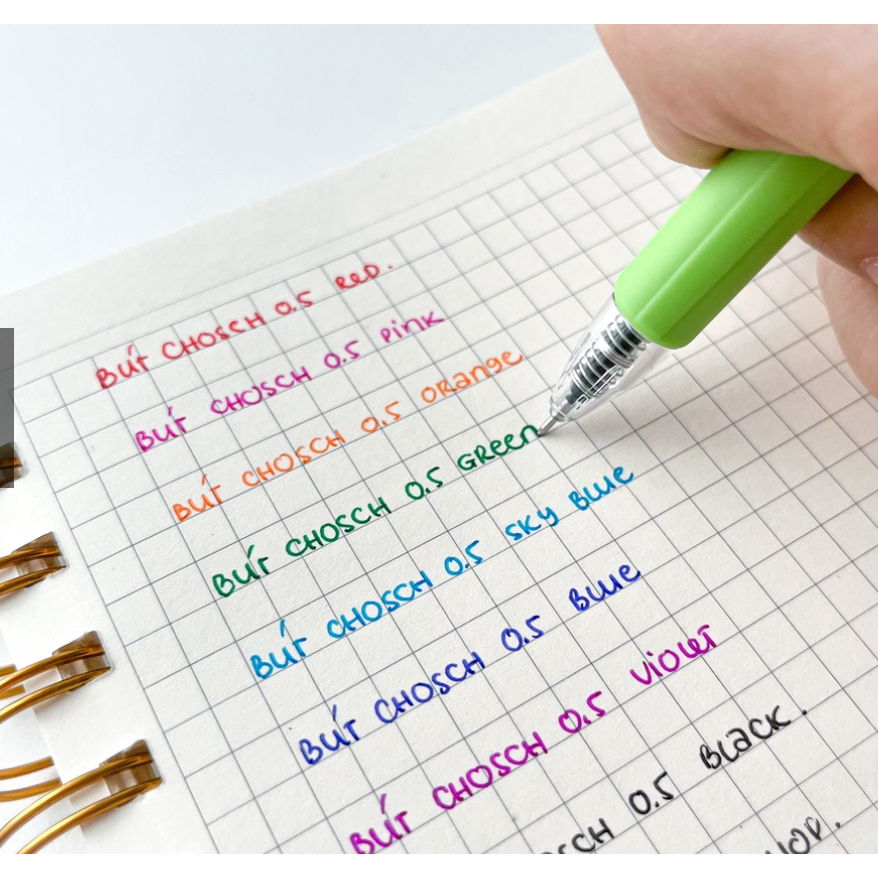 BÚT CHOSCH 0.5 RED.
BÚT CHOSCH 0.5 Pink
BÚT CHOSCH 0.5 ORange
BÚT CHOSCH 0.5 GReen
BÚT CHOSCH 0.5 SKY BLUe
BÚT CHOSCH 0.5 BLUe
BÚT CHOSCH 0.5 VioLeT
0.5 BLacK.